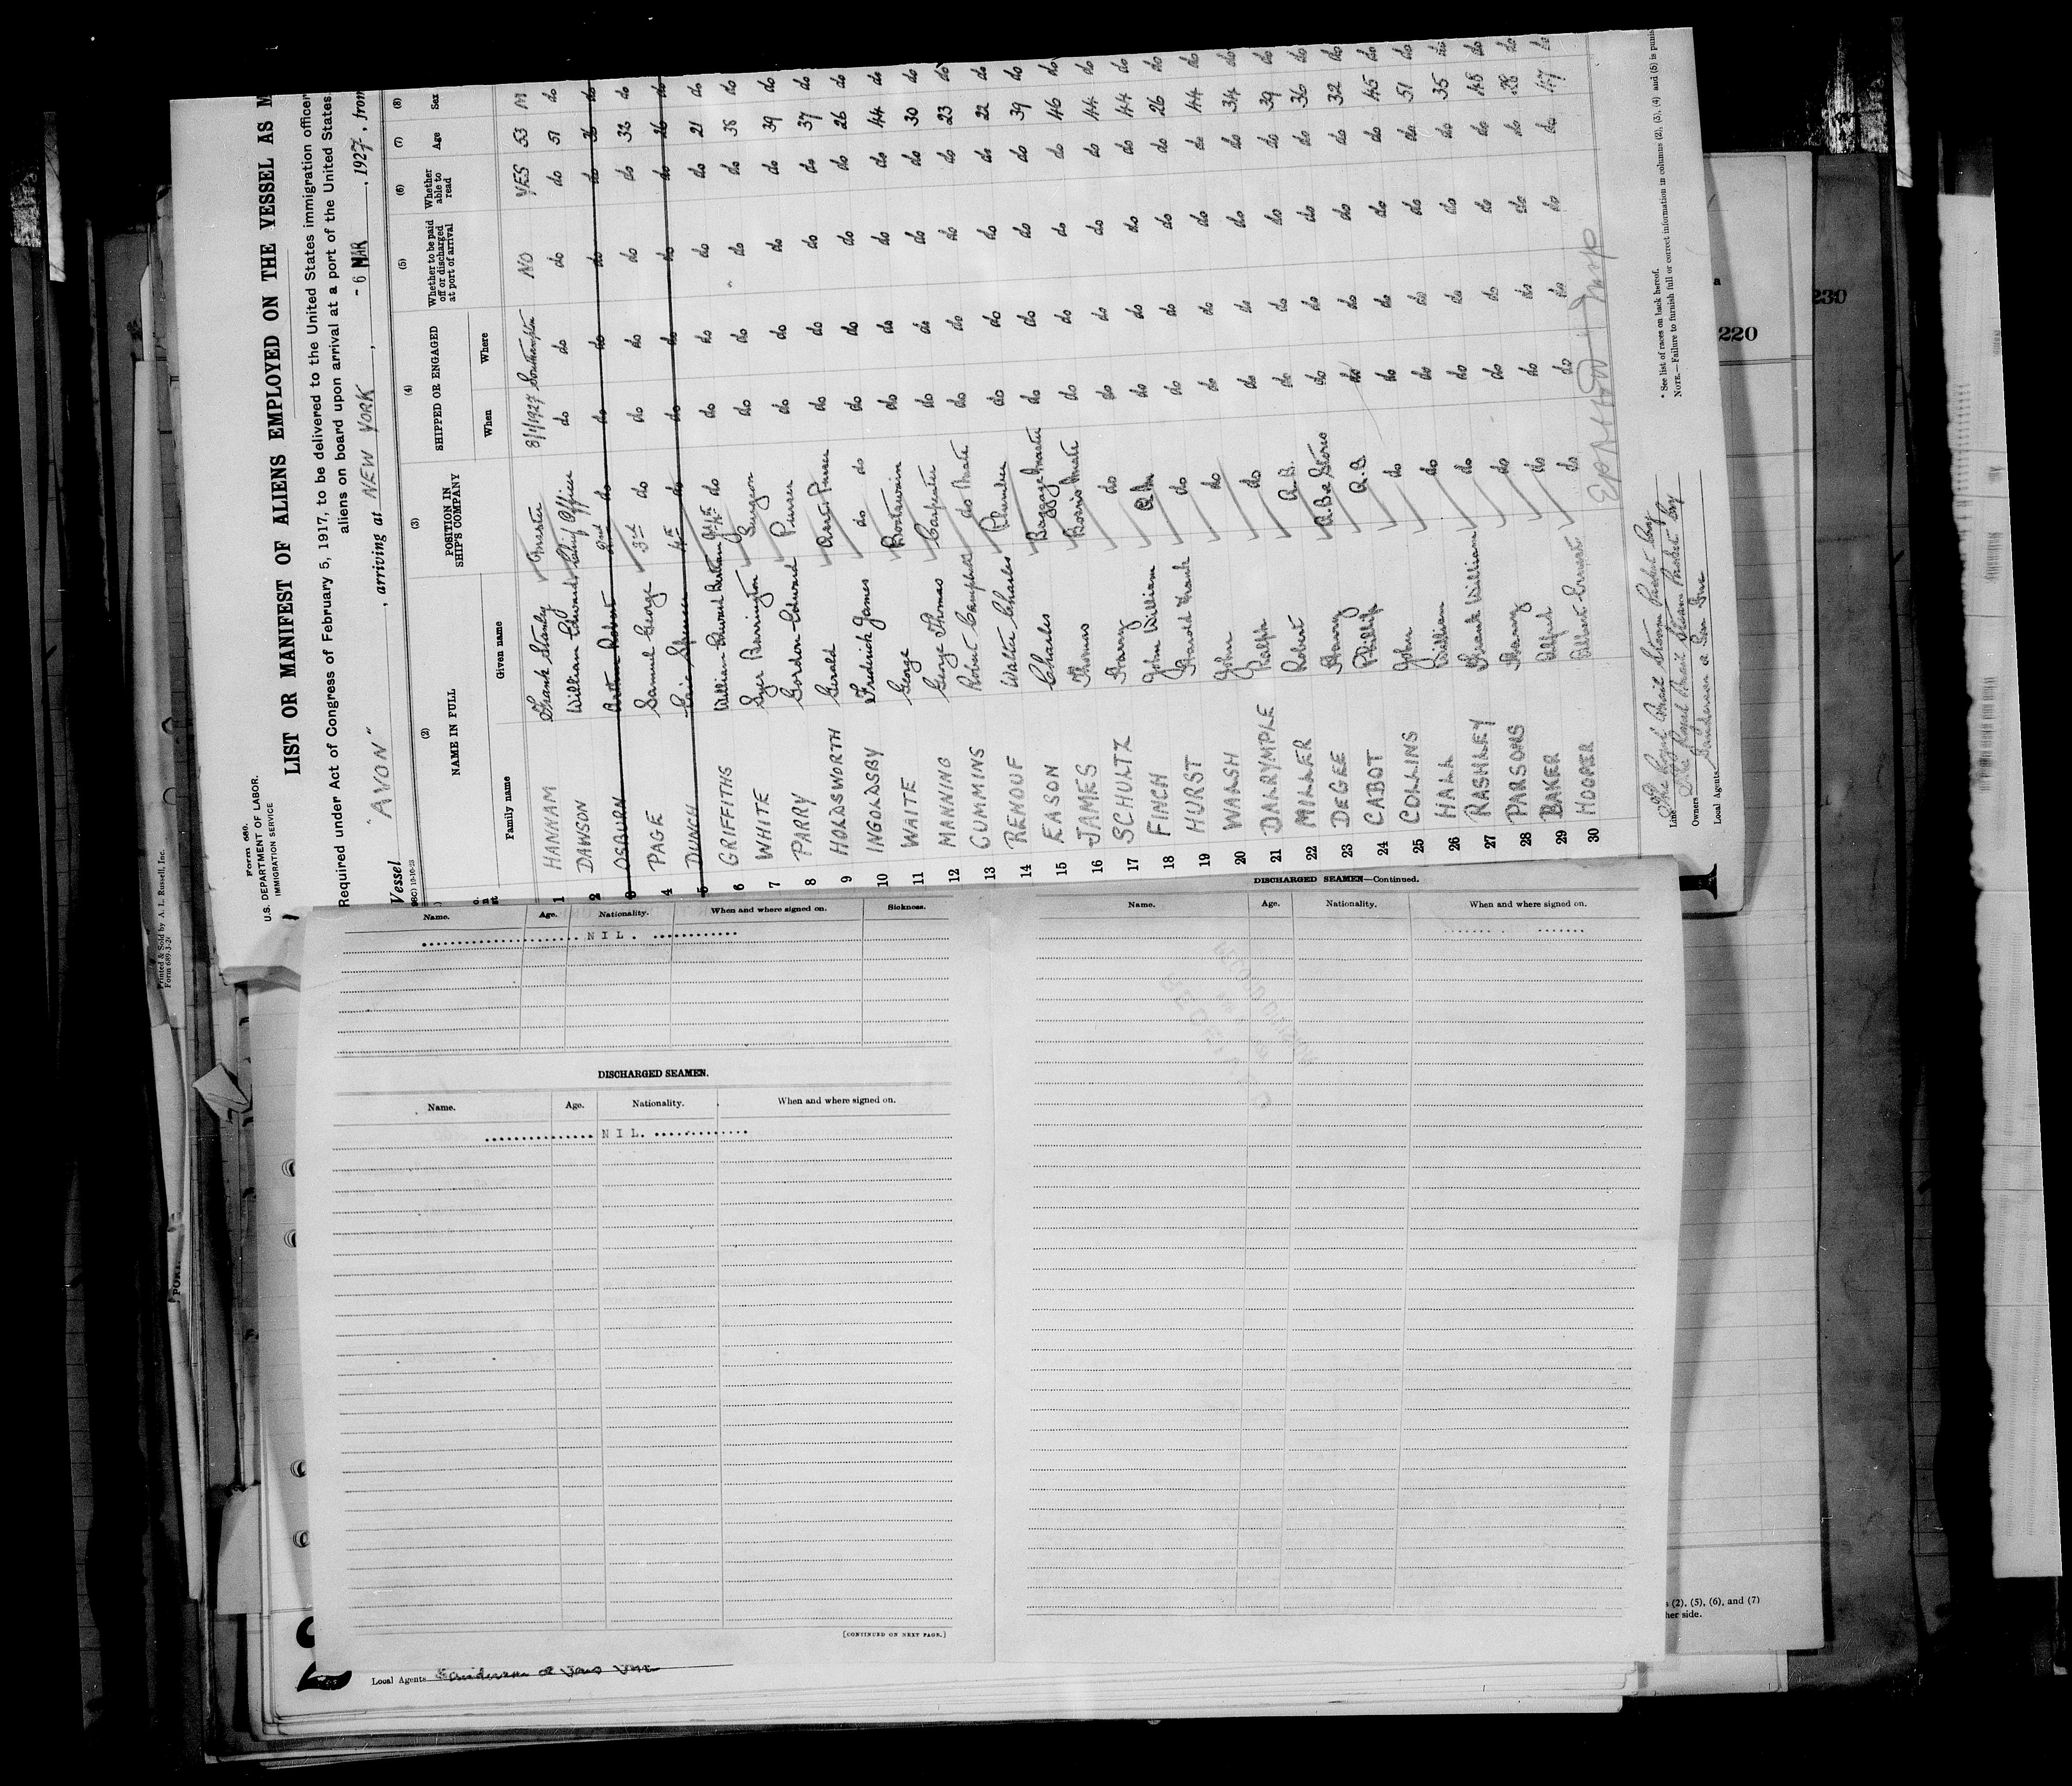 Form 680.
U.S. DEPARTMENT OF LABOR.
IMMIGRATION SERVICE
LIST OR MANIFEST OF ALIENS EMPLOYED ON THE VESSEL AS M
Required under Act of Congress of February 5, 1917, to be delivered to the United States immigration officer
aliens on board upon arrival at a port of the United States
Vessel "AVON", arriving at NEW YORK, - 6 MAR, 1927, from
(2) (3) (4) (5) (6) (7) (8)
NAME IN FULL POSITION IN SHIP'S COMPANY SHIPPED OR ENGAGED Whether to be paid off or discharged at port of arrival Whether able to read Age Sex
Family name Given name When Where
1 HANNAM Frank Stanley Master 8/1/1927 Southampton NO YES 53 M
2 DAWSON William Edward Chief Officer do do do do 51 do
3 OSBURN Arthur Robert 2nd do do do do do 36 do
4 PAGE Samuel George 3rd do do do do do 32 do
5 DUNCH Eric Spencer 4th do do do do do 26 do
6 GRIFFITHS William Edward Bertram 4th do do do do do 21 do
7 WHITE Barrington Surgeon do do do do 38 do
8 PARRY Gordon Edward Purser do do do do 39 do
9 HOLDSWORTH Gerald Asst Purser do do do do 37 do
10 INGOLDSBY Frederick James do do do do do do 26 do
11 WAITE George Boatswain do do do do 44 do
12 MANNING George Thomas Carpenter do do do do 30 do
13 CUMMINS Robert Campbell do Mate do do do do 23 do
14 RENOUF Walter Charles Plumber do do do do 22 do
15 EASON Charles Baggage Master do do do do 39 do
16 JAMES Thomas Bosn's Mate do do do do 46 do
17 SCHULTZ Harry do do do do do 44 do
18 FINCH John William Q.M do do do do 44 do
19 HURST Harold Frank do do do do do 26 do
20 WALSH John do do do do do 44 do
21 DALRYMPLE Ralph do do do do do 34 do
22 MILLER Robert A.B. do do do do 39 do
23 DEGEE Harry A.B & Stores do do do do 36 do
24 CABOT Phillip A.B. do do do do 32 do
25 COLLINS John do do do do do 45 do
26 HALL William do do do do do 51 do
27 RASHLEY Frank William do do do do do 35 do
28 PARSONS Harry do do do do do 48 do
29 BAKER Alfred do do do do do 28 do
30 HOOPER Albert Ernest do do do do do 47 do
Line The Royal Mail Steam Packet Coy
Owners The Royal Mail Steam Packet Coy
Local Agents Sanderson & Son Inc
* See list of races on back hereof.
NOTE.—Failure to furnish full or correct information in columns (2), (3), (4) and (5) is punis
Printed & Sold by A. L. Russell, Inc.
220
230
Name. Age. Nationality. When and where signed on. Sickness.
NIL.
DISCHARGED SEAMEN.
Name. Age. Nationality. When and where signed on.
NIL.
[CONTINUED ON NEXT PAGE.]
DISCHARGED SEAMEN—Continued.
Name. Age. Nationality. When and where signed on.
Local Agents Sanderson & Sons Inc
s (2), (5), (6), and (7)
her side.